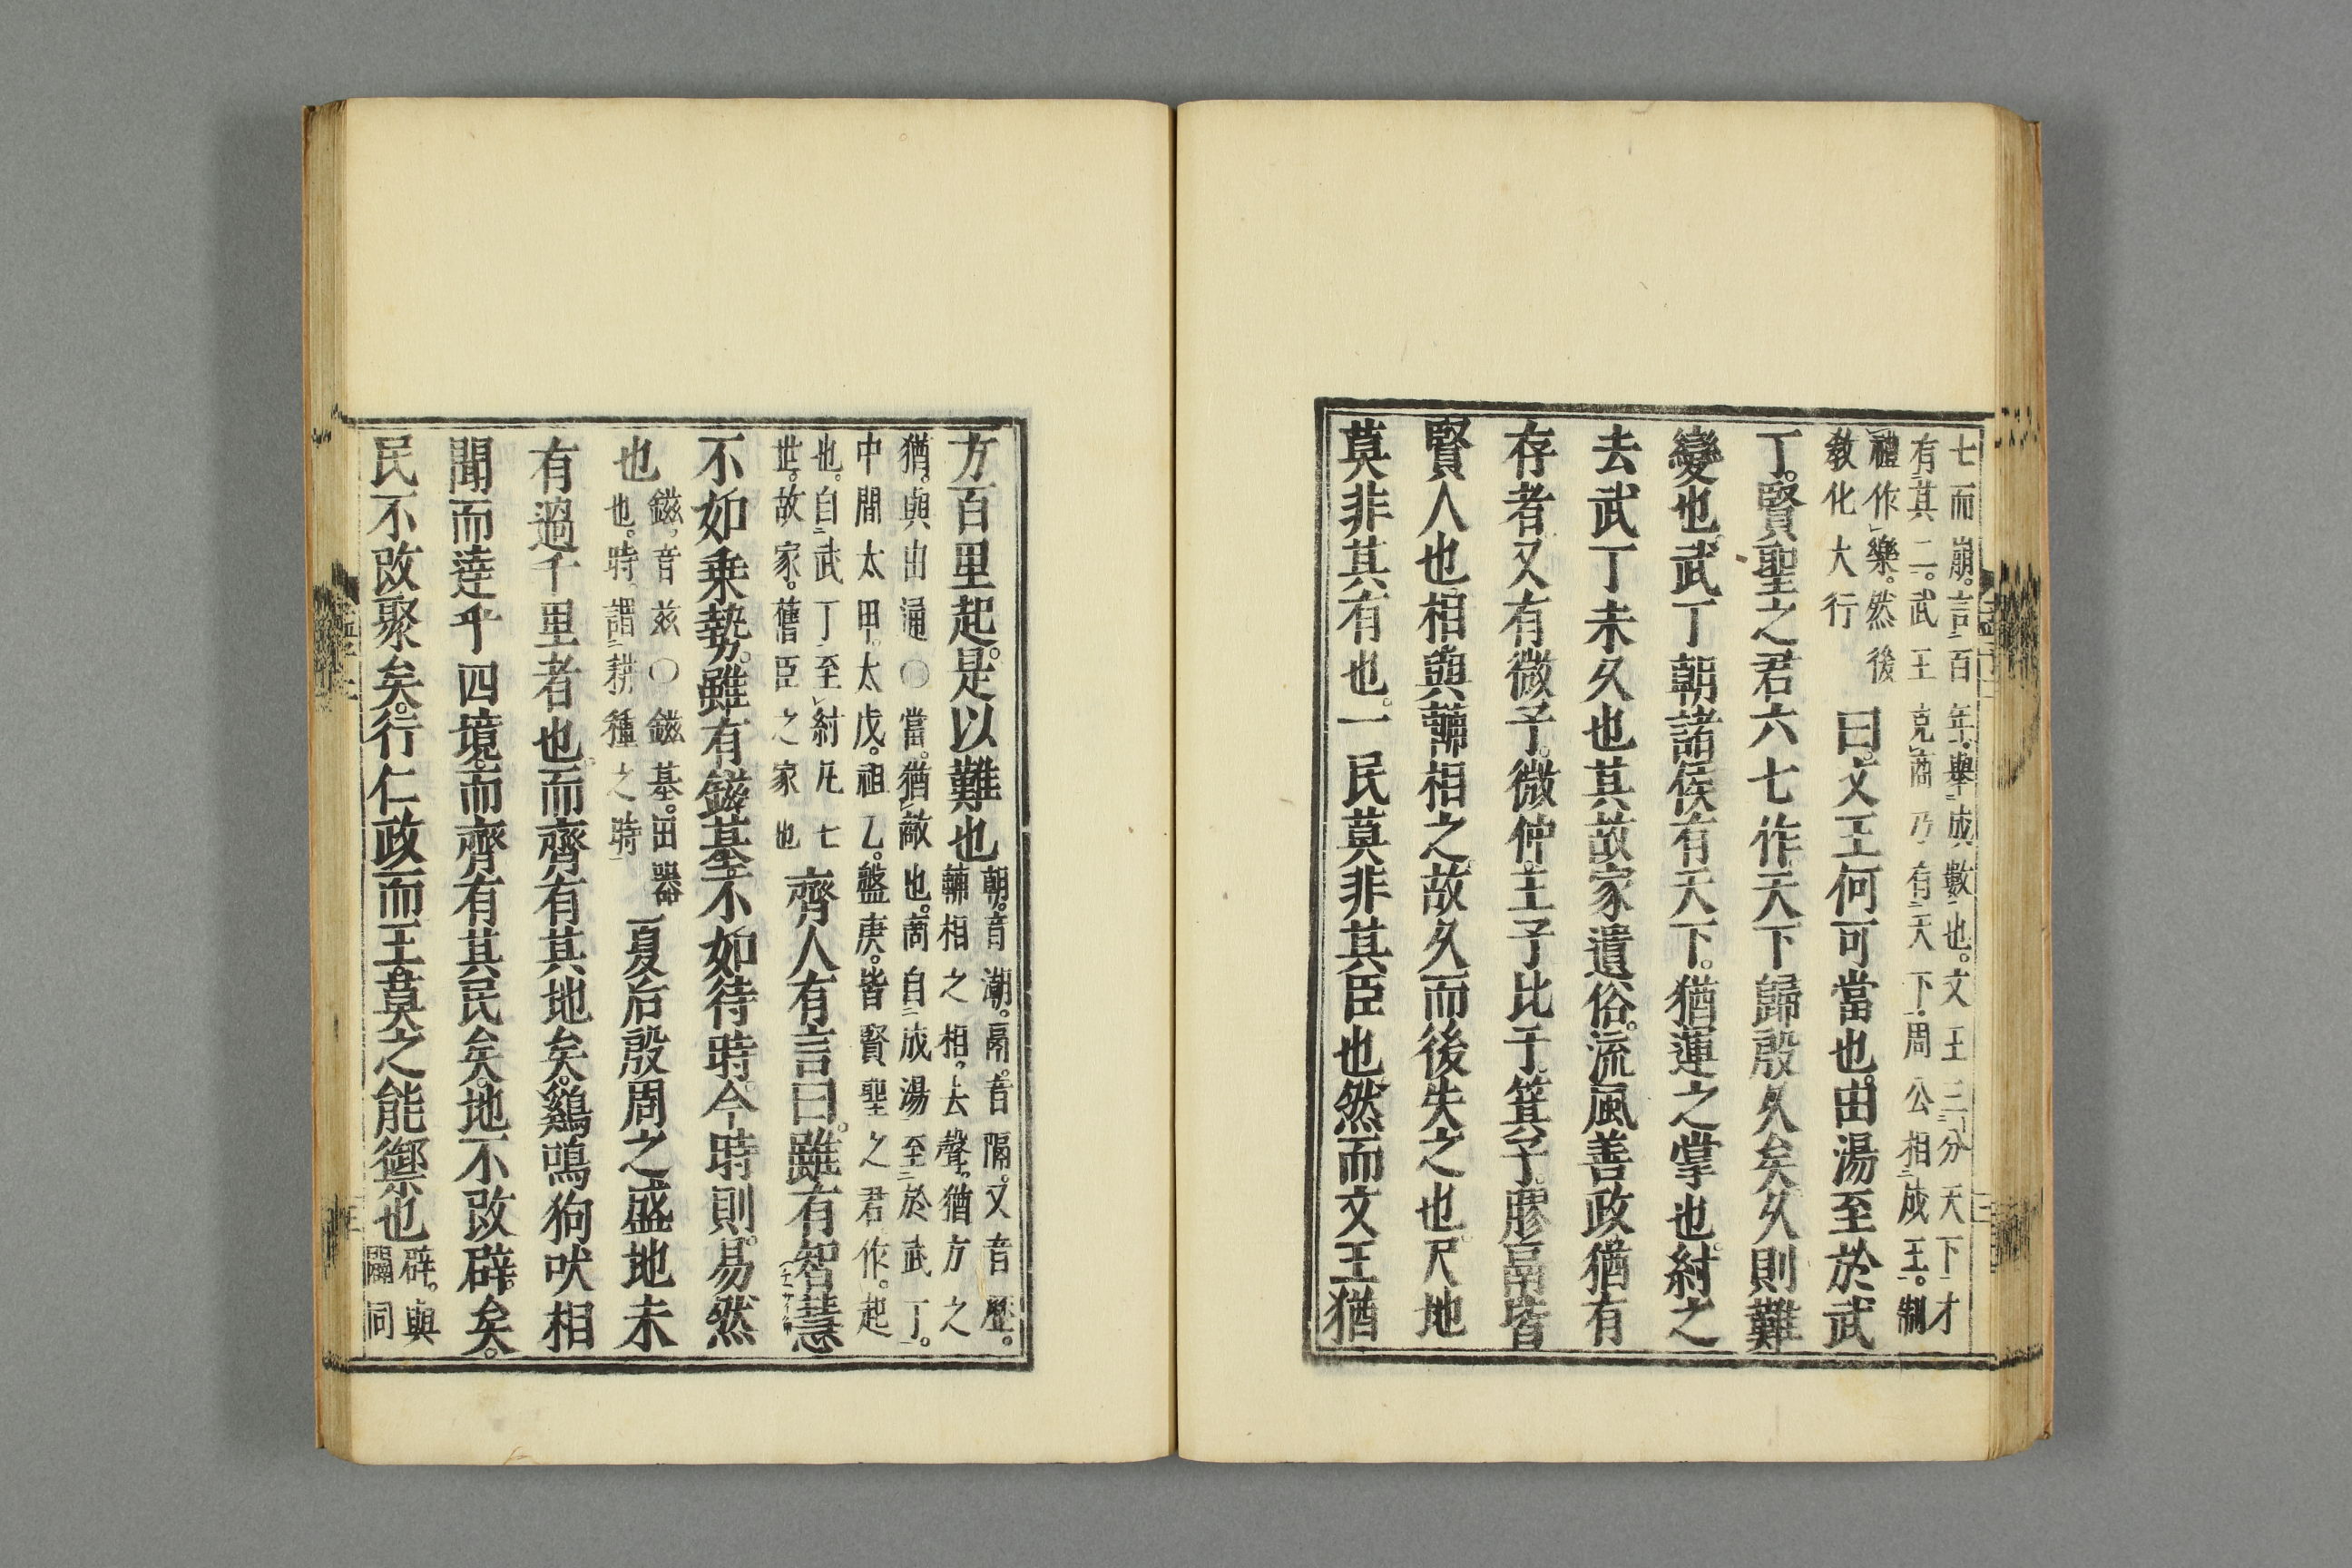 七而崩。言百年。舉成數也。文王三分天下才
有其二。武王克商乃有天下。周公相成王。制
禮作樂。然後
敎化大行
曰。文王何可當也。由湯至於武
丁。賢聖之君六七作天下歸殷久矣久則難
變也。武丁朝諸侯有天下。猶運之掌也。紂之
去武丁未久也其故家遺俗。流風善政猶有
存者。又有微子。微仲。王子比干。箕子。膠鬲皆
賢人也。相與輔相之。故久而後失之也。尺地
莫非其有也。一民莫非其臣也然而文王猶
方百里起。是以難也
朝。音潮。鬲。音隔。又音歷。
輔相之相。去聲。猶方之
猶。與由通○當。猶敵也。商自成湯至於武丁。
中間太甲。太戊。祖乙。盤庚。皆賢聖之君作。起
也。自武丁至紂凡七
世。故家。舊臣之家也
齊人有言曰。雖有智慧
不如乗勢。雖有鎡基不如待時。今時則易然
也
鎡。音兹○鎡基。田器
也。時。謂耕種之時
夏后殷周之盛地未
有過千里者也。而齊有其地矣。鷄鳴狗吠相
聞而達乎四境。而齊有其民矣。地不改辟。矣。
民不改聚矣。行仁政而王。莫之能禦也
辟。與
闢同